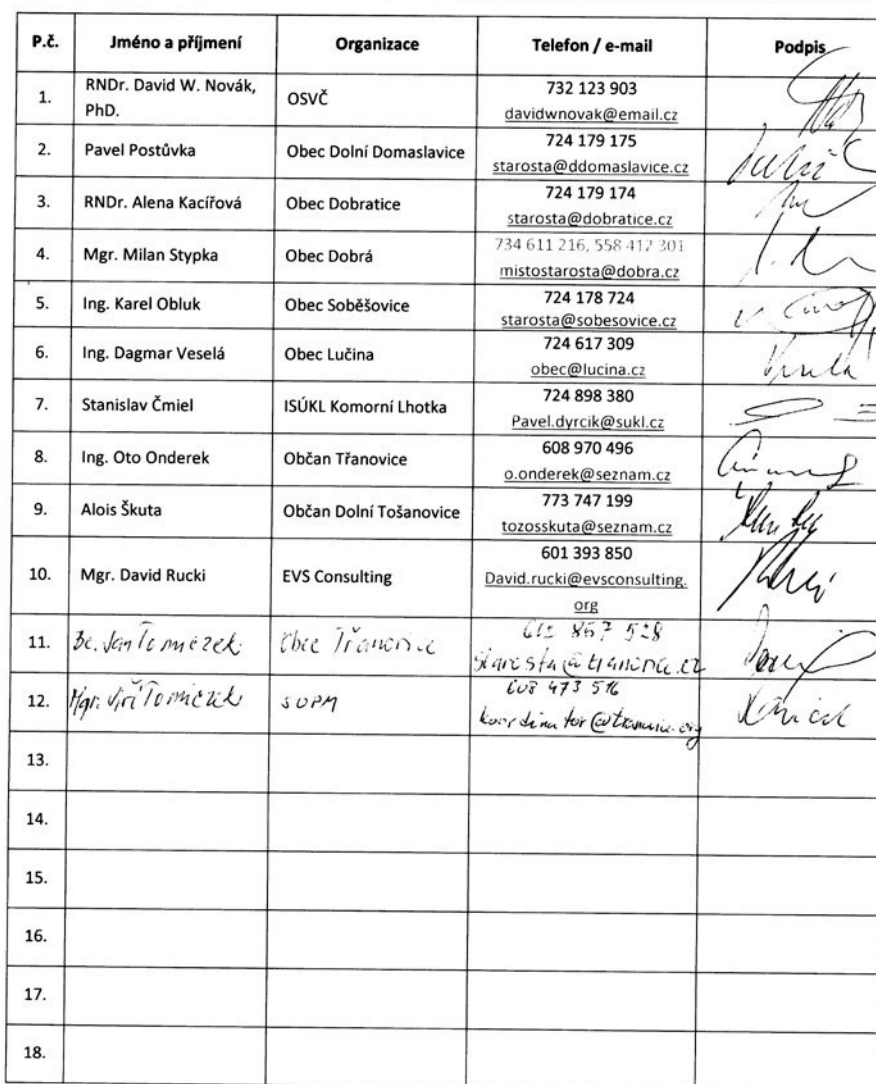 P.č. Jméno a příjmení Organizace Telefon / e-mail Podpis
1. RNDr. David W. Novák, PhD. OSVČ 732 123 903
davidwnovak@email.cz
2. Pavel Postůvka Obec Dolní Domaslavice 724 179 175
starosta@ddomaslavice.cz
3. RNDr. Alena Kacířová Obec Dobratice 724 179 174
starosta@dobratice.cz
4. Mgr. Milan Stypka Obec Dobrá 734 611 216, 558 412 301
mistostarosta@dobra.cz
5. Ing. Karel Obluk Obec Soběšovice 724 178 724
starosta@sobesovice.cz
6. Ing. Dagmar Veselá Obec Lučina 724 617 309
obec@lucina.cz
7. Stanislav Čmiel ISÚKL Komorní Lhotka 724 898 380
Pavel.dyrcik@sukl.cz
8. Ing. Oto Onderek Občan Třanovice 608 970 496
o.onderek@seznam.cz
9. Alois Škuta Občan Dolní Tošanovice 773 747 199
tozosskuta@seznam.cz
10. Mgr. David Rucki EVS Consulting 601 393 850
David.rucki@evsconsulting.
org
11. Bc. Jan Tomiczek Obec Třanovice
12. Mgr. Jiří Tomiczek SOPM 608 473 516
13.
14.
15.
16.
17.
18.